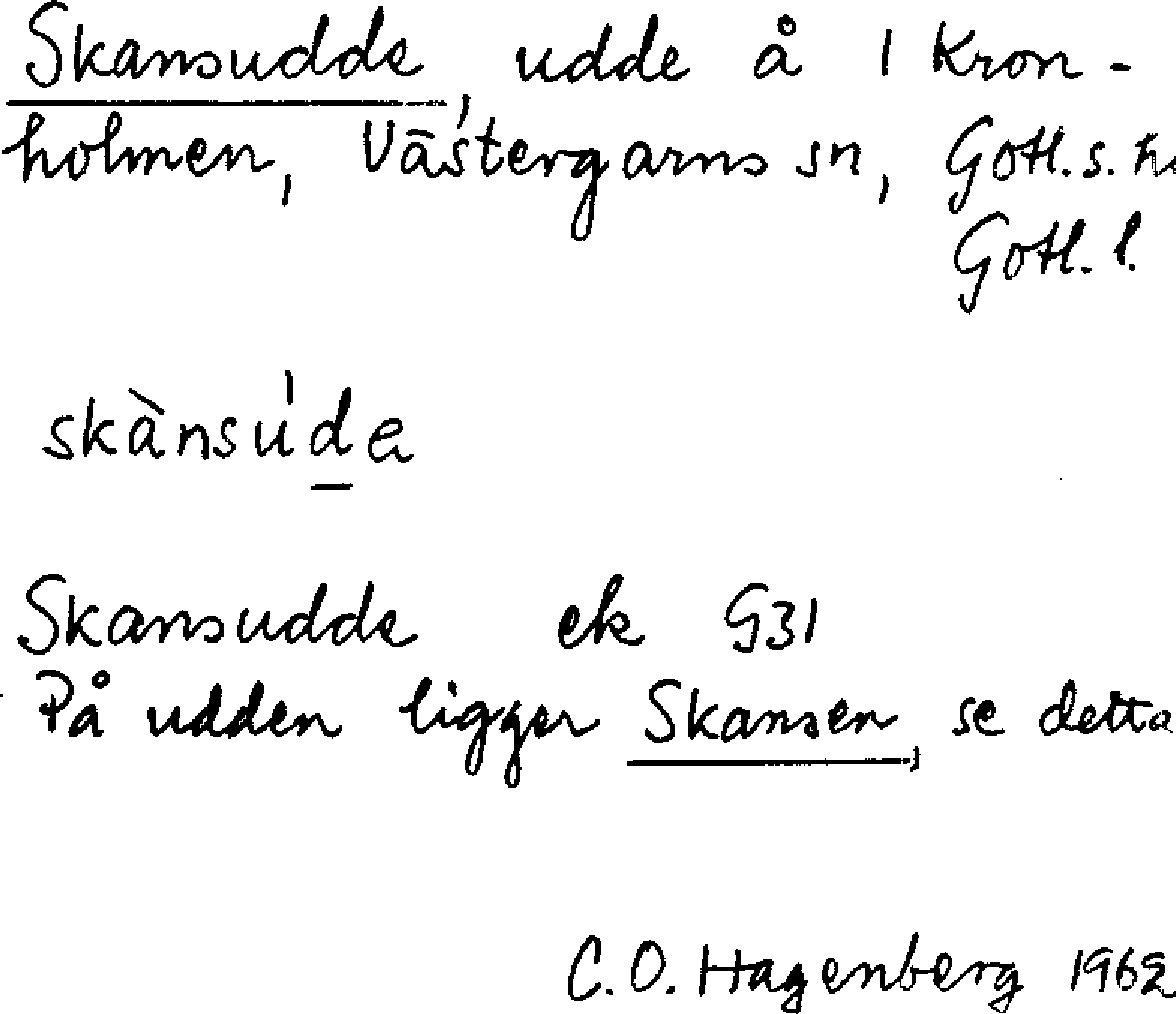 Skansudde, udde å 1 Kron-
holmen, Västergarns sn, Gotl. s. h
Gotl. l.
skànsu̍d̲e
Skansudde ek G31
På udden ligger Skansen, se detta
C.O. Hagenberg 1962